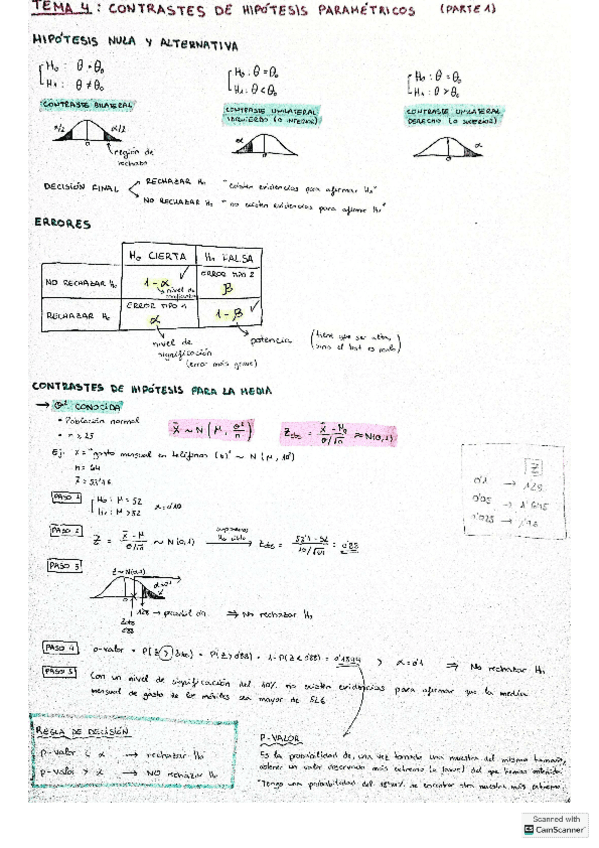 TEMA 4: CONTRASTES DE HIPÓTESIS PARAMÉTRICOS (PARTE 1)
HIPÓTESIS NULA Y ALTERNATIVA
H₀ : θ = θ₀
H₁ : θ ≠ θ₀
CONTRASTE BILATERAL
α/2 α/2
0
región de rechazo
H₀ : θ = θ₀
H₁ : θ < θ₀
CONTRASTE UNILATERAL
IZQUIERDO (O INFERIOR)
α
0
H₀ : θ = θ₀
H₁ : θ > θ₀
CONTRASTE UNILATERAL
DERECHO (O SUPERIOR)
α
0
DECISIÓN FINAL
RECHAZAR H₀ "existen evidencias para afirmar H₁"
NO RECHAZAR H₀ "no existen evidencias para afirmar H₁"
ERRORES
H₀ CIERTA H₀ FALSA
NO RECHAZAR H₀ 1-α ✓ nivel de confianza ERROR TIPO 2 β
RECHAZAR H₀ ERROR TIPO 1 α 1-β ✓
nivel de significación
(error más grave)
potencia (tiene que ser alta, sino el test es malo)
CONTRASTES DE HIPÓTESIS PARA LA MEDIA
→ σ² CONOCIDA
• Población normal
• n ≥ 25
X̄ ~ N(μ, σ²/n)
Zobs = (X̄ - μ₀)/(σ/√n) ≈ N(0,1)
Ej: X = "gasto mensual en teléfonos (€)" ~ N(μ, 10²)
n = 64
Z
0'1 → 1'28
0'05 → 1'645
0'025 → 1'96
PASO 1
H₀ : μ = 52
H₁ : μ > 52
α = 0'10
PASO 2
Z = (X̄ - μ)/(σ/√n) ~ N(0,1) → Zobs = = 0'88
suponemos H₀ cierta
PASO 3
Z ~ N(0,1)
α = 0'1
0
1'28
Zobs
0'88
⇒ No rechazar H₀
PASO 4
p-valor = P(Z > Zobs) = P(Z > 0'88) = 1 - P(Z < 0'88) = 0'1894 > α = 0'1 ⇒ No rechazar H₀
PASO 5
Con un nivel de significación del 10% no existen evidencias para afirmar que la media
mensual de gasto de los móviles sea mayor de 52€
REGLA DE DECISIÓN
p-valor < α → rechazar H₀
p-valor > α → NO rechazar H₀
P-VALOR
Es la probabilidad de, una vez tomada una muestra del mismo tamaño,
obtener un valor observado más extremo (a favor) del que hemos obtenido
"Tengo una probabilidad del 18'94% de encontrar otra muestra más extrema
Scanned with
CamScanner